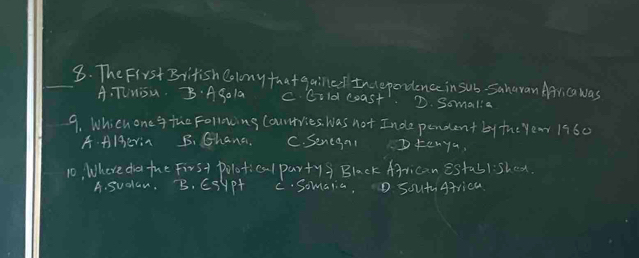 8. The First British Colony that gained Independence in Sub-Saharan Africa was
A. Tunisu. B. Agola C. Gold coast. D. Somalia
9. Which one of the Following Countries was not Independent by the Year 1960
A. Algeria B. Ghana. C. Senegal D. Kenya.
10. Where did the First Political party of Black African Established.
A. Sudan. B. Egypt C. Somalia. D South Africa